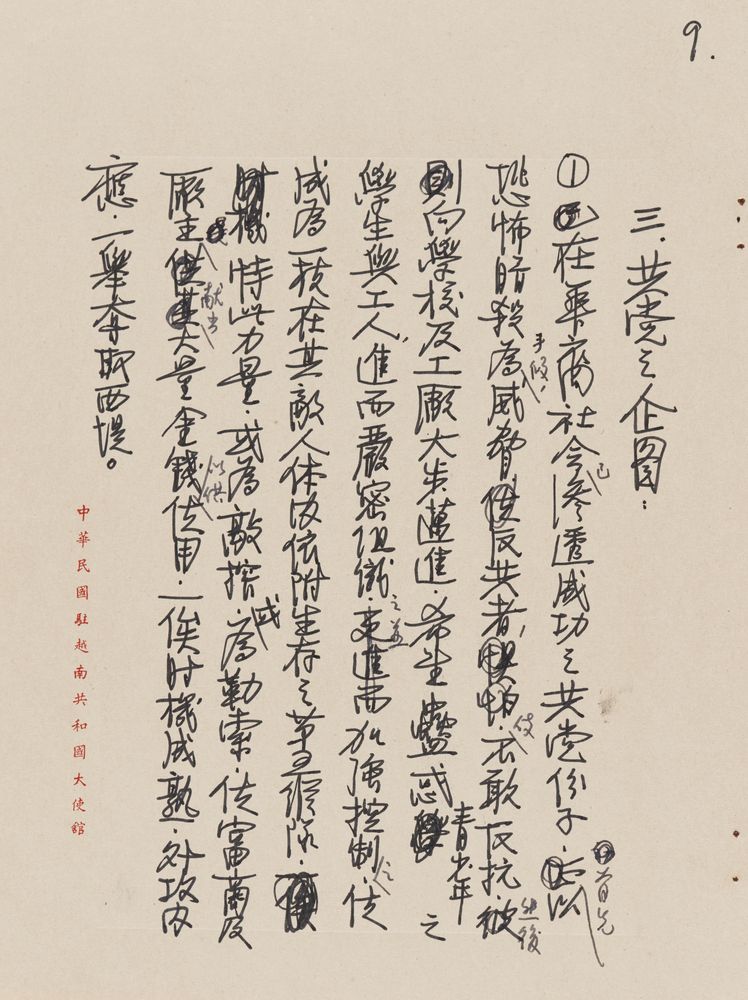 9.
三.共党之企图：
① 在华裔社会已渗透成功之共党份子.首先以
恐怖暗殺手段，為威脅使反共者惧怕.不敢反抗.然後
則向學校及工廠大步邁進.希圖蠱惑青少年之
學生與工人，進而嚴密組織之並更進而加強控制.使之
成為一枝在其敵人体内依附生存之革命縱隊.
特此力量.或為敲搾.或為勒索.使富商及
廠主獻出大量金錢以供使用.一俟时機成熟.外攻内
應.一舉奪取西堤。
中華民國駐越南共和國大使館